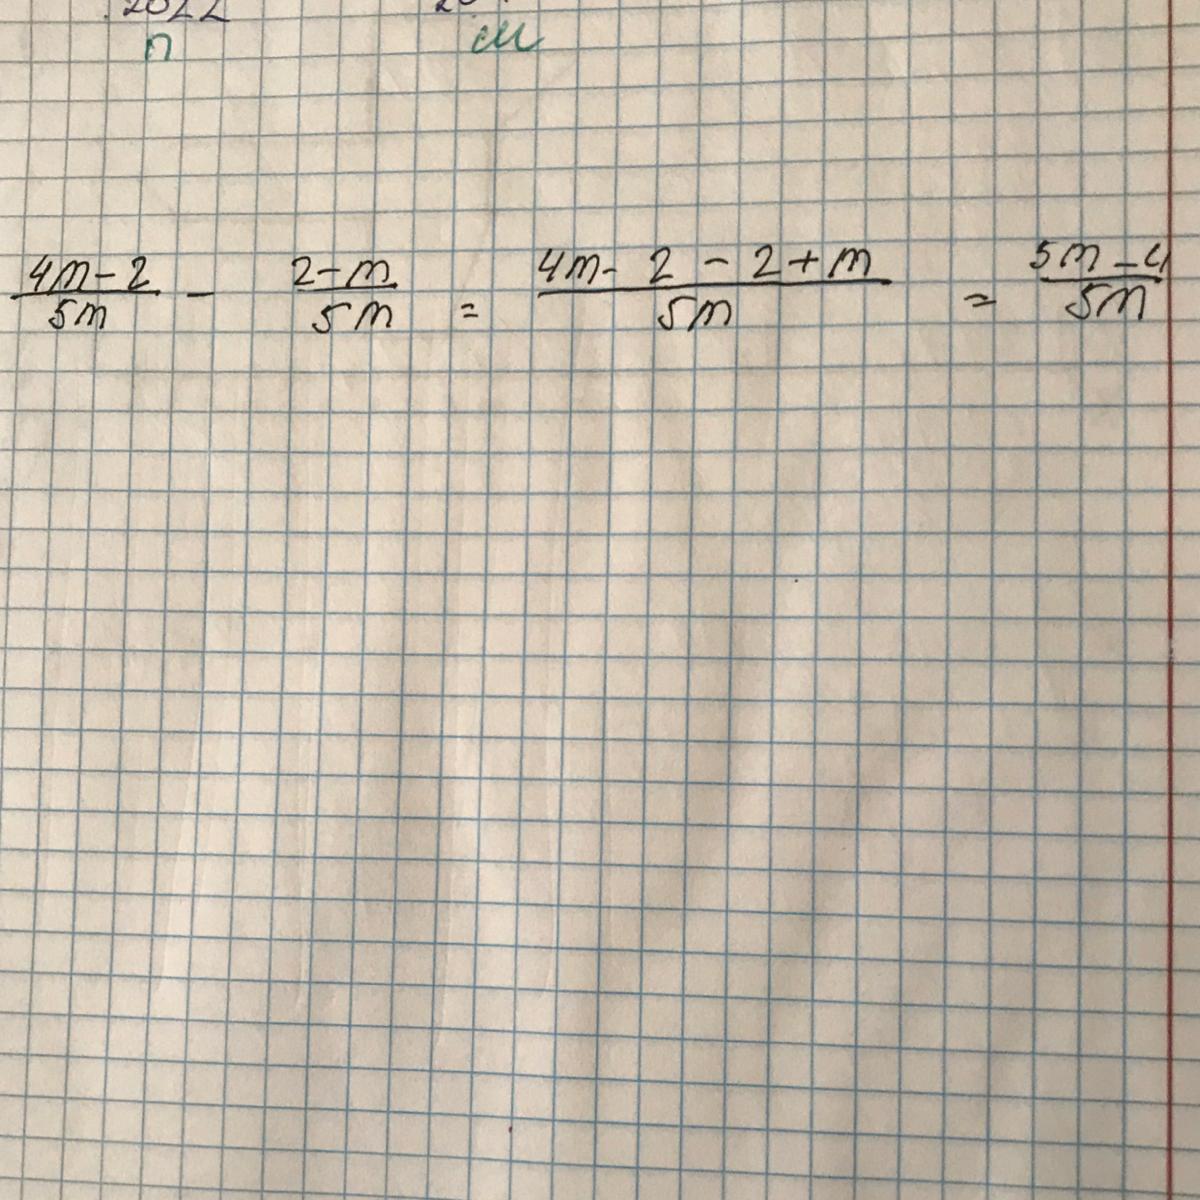 2022
п
м
4m-2/5m - 2-m/5m = 4m-2-2+m/5m = 5m-4/5m